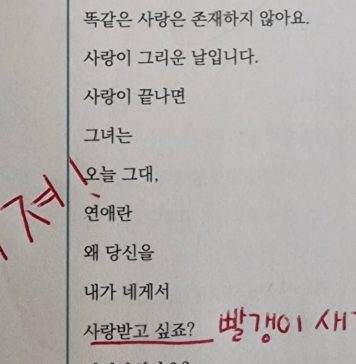 똑같은 사랑은 존재하지 않아요.
사랑이 그리운 날입니다.
사랑이 끝나면
그녀는
오늘 그대,
연애란
왜 당신을
내가 네게서
사랑받고 싶죠? 빨갱이